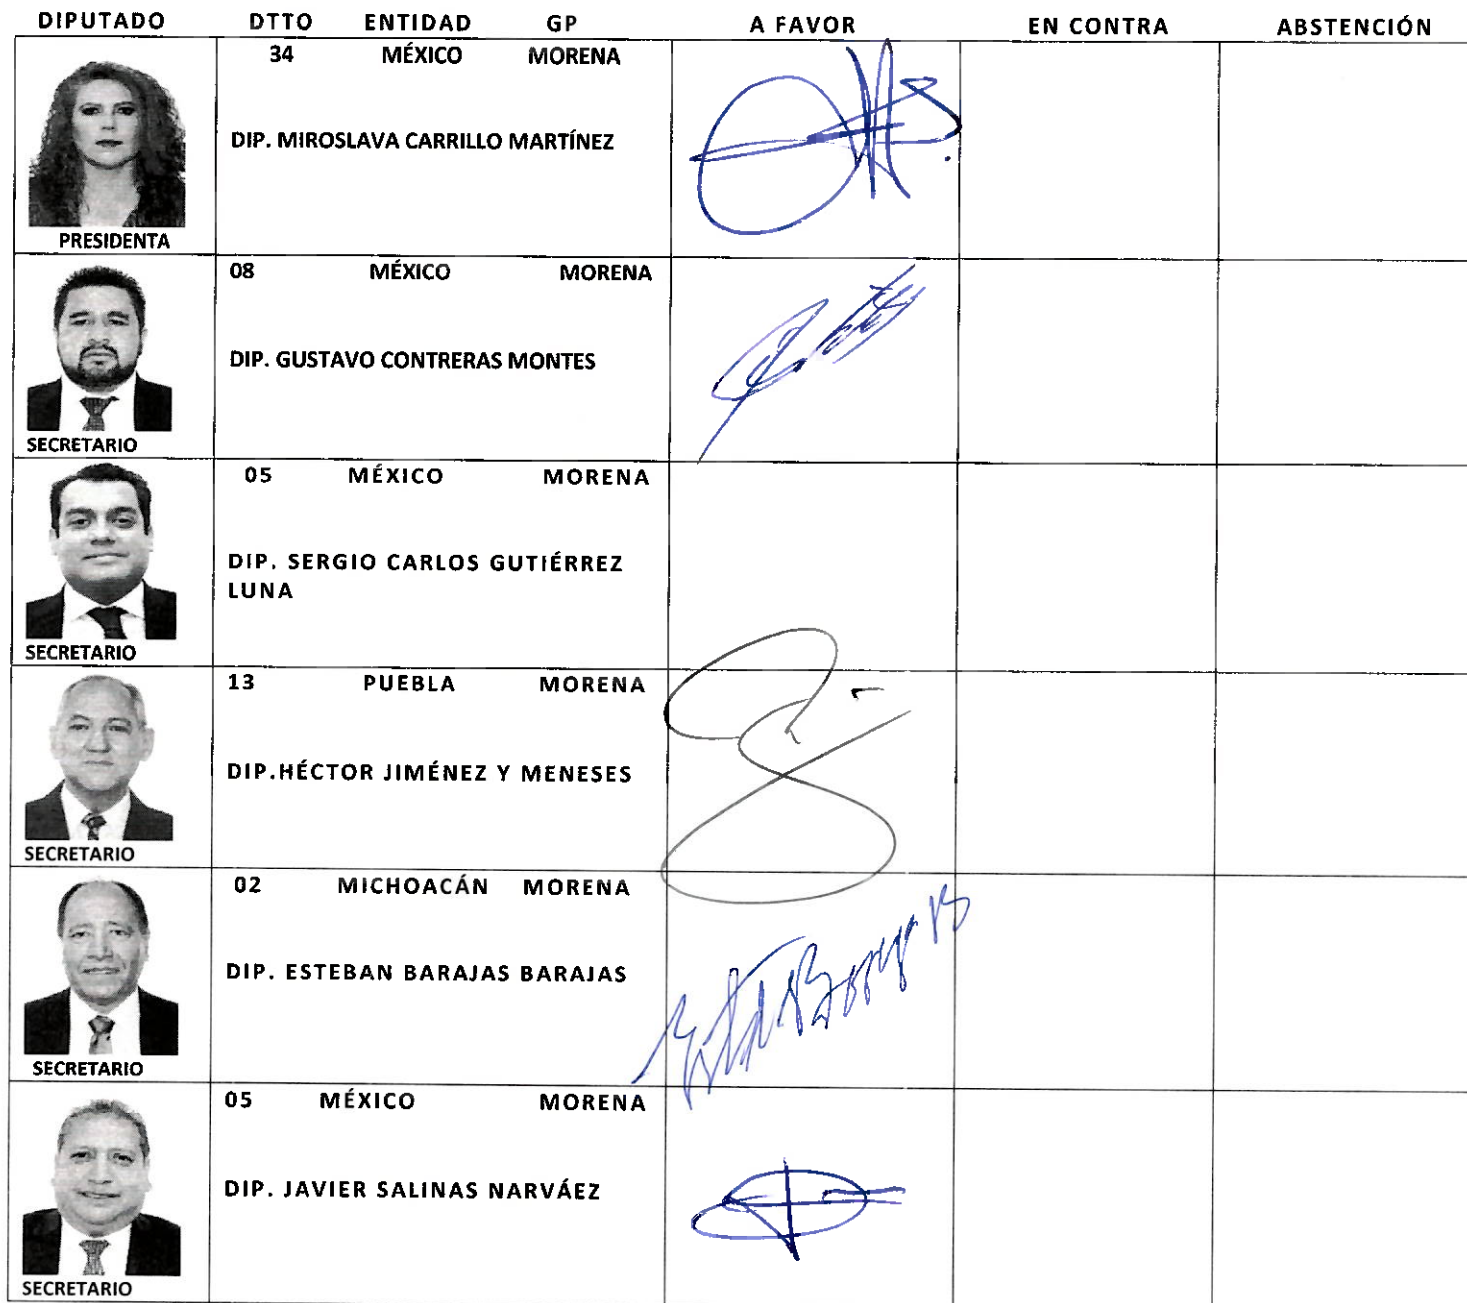 DIPUTADO DTTO ENTIDAD GP A FAVOR EN CONTRA ABSTENCIÓN
34 MÉXICO MORENA
DIP. MIROSLAVA CARRILLO MARTÍNEZ
PRESIDENTA
08 MÉXICO MORENA
DIP. GUSTAVO CONTRERAS MONTES
SECRETARIO
05 MÉXICO MORENA
DIP. SERGIO CARLOS GUTIÉRREZ
LUNA
SECRETARIO
13 PUEBLA MORENA
DIP.HÉCTOR JIMÉNEZ Y MENESES
SECRETARIO
02 MICHOACÁN MORENA
DIP. ESTEBAN BARAJAS BARAJAS
SECRETARIO
05 MÉXICO MORENA
DIP. JAVIER SALINAS NARVÁEZ
SECRETARIO